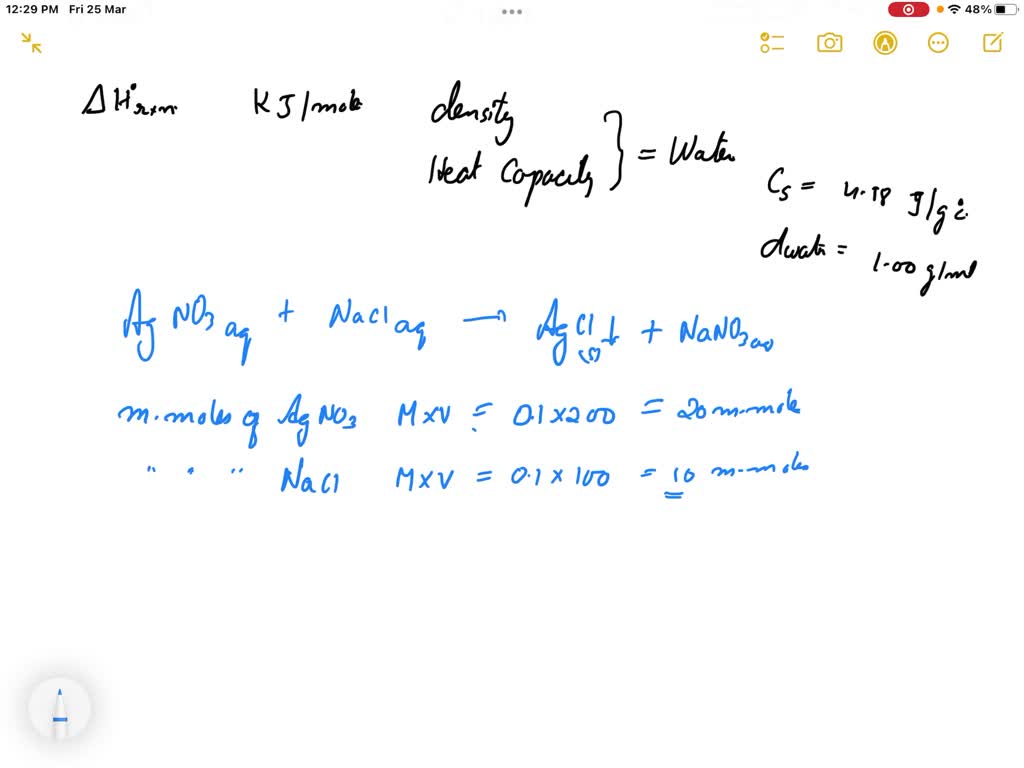 12:29 PM Fri 25 Mar
48%
ΔH°rxn KJ/mole density
Heat Capacity } = Water
Cs = 4.18 J/g°c
dwater = 1.00 g/ml
AgNO3 aq + NaCl aq → AgCl(s)↓ + NaNO3 aq
m.moles of AgNO3 MxV = 0.1x200 = 20 m.mole
" " " NaCl MxV = 0.1 x 100 = 10 m-moles